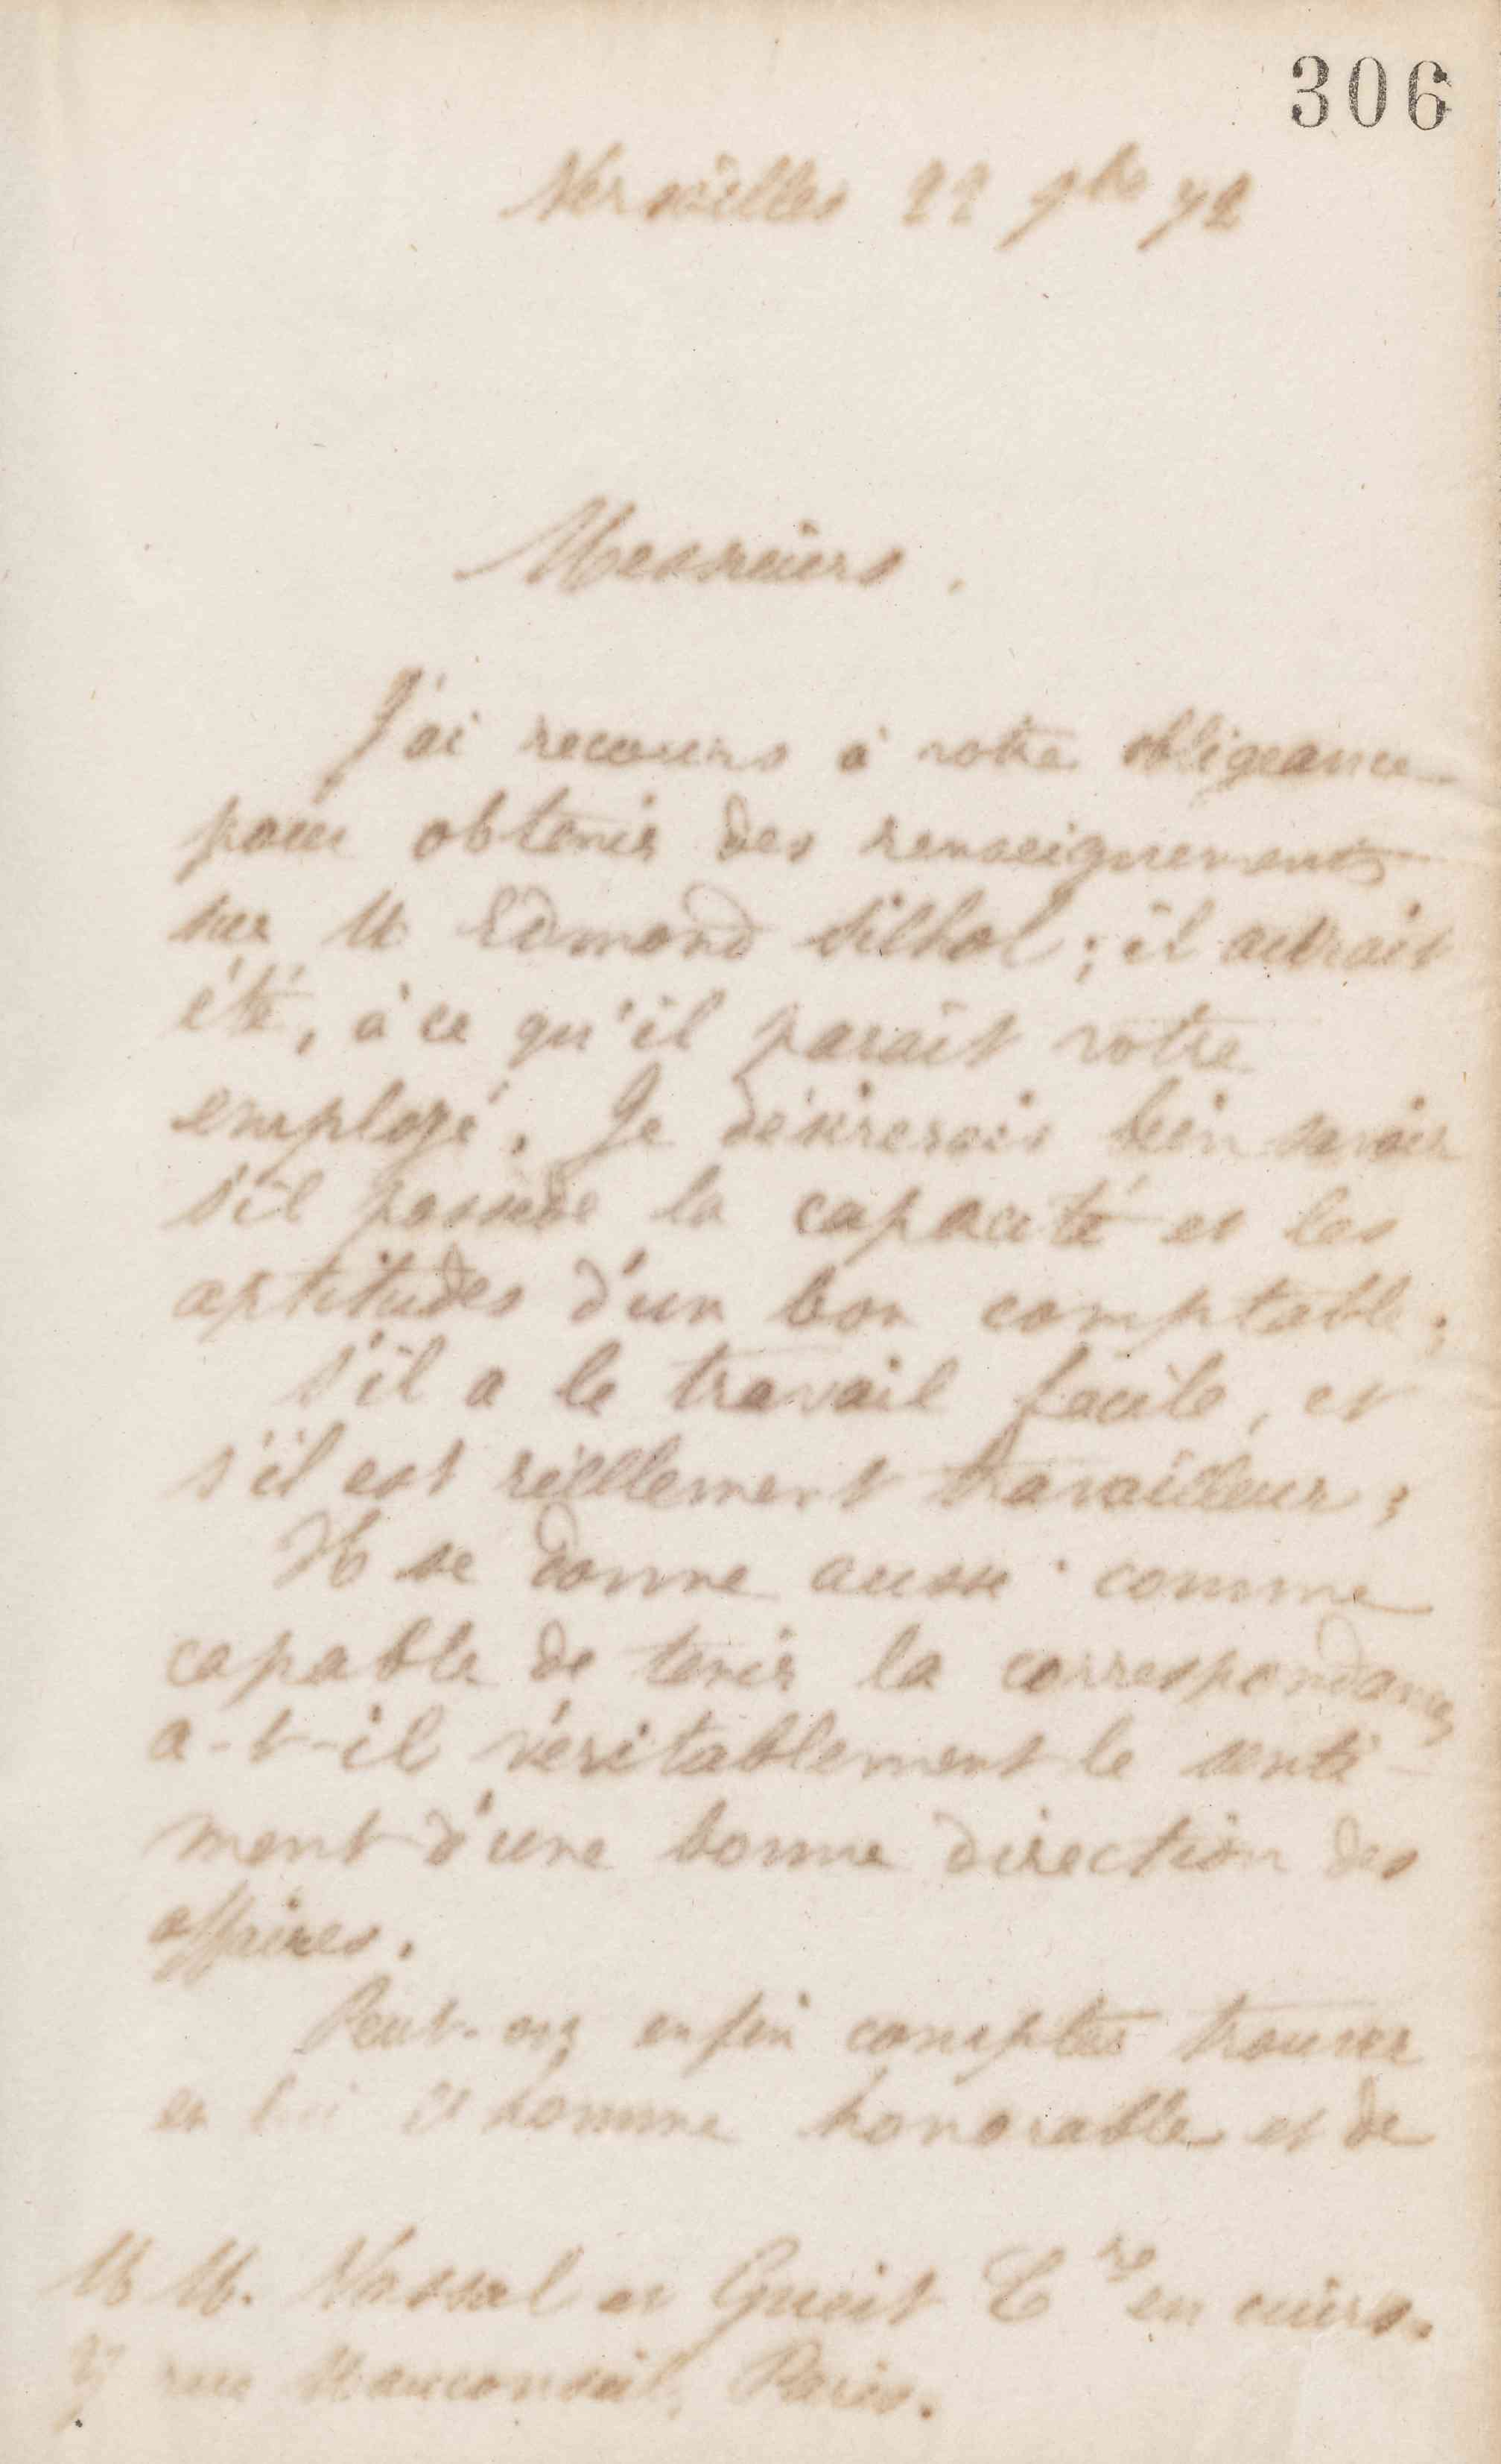 306
Versailles 22 9bre 72
Messieurs.
J'ai recours à votre obligeance
pour obtenir des renseignements
sur M Edmond Silhol ; il aurait
été, à ce qu'il parait votre
employé. Je désirerais bien savoir
s'il possède la capacité et les
aptitudes d'un bon comptable ;
s'il a le travail facile, et
s'il est réellement travailleur ;
Il se donne aussi comme
capable de tenir la correspondance
a-t-il véritablement le senti-
ment d'une bonne direction des
affaires.
Peut-on enfin compter trouver
en lui homme honorable et de
M M. Vassal et Gueit en cuirs.
rue Mauconseil, Paris.